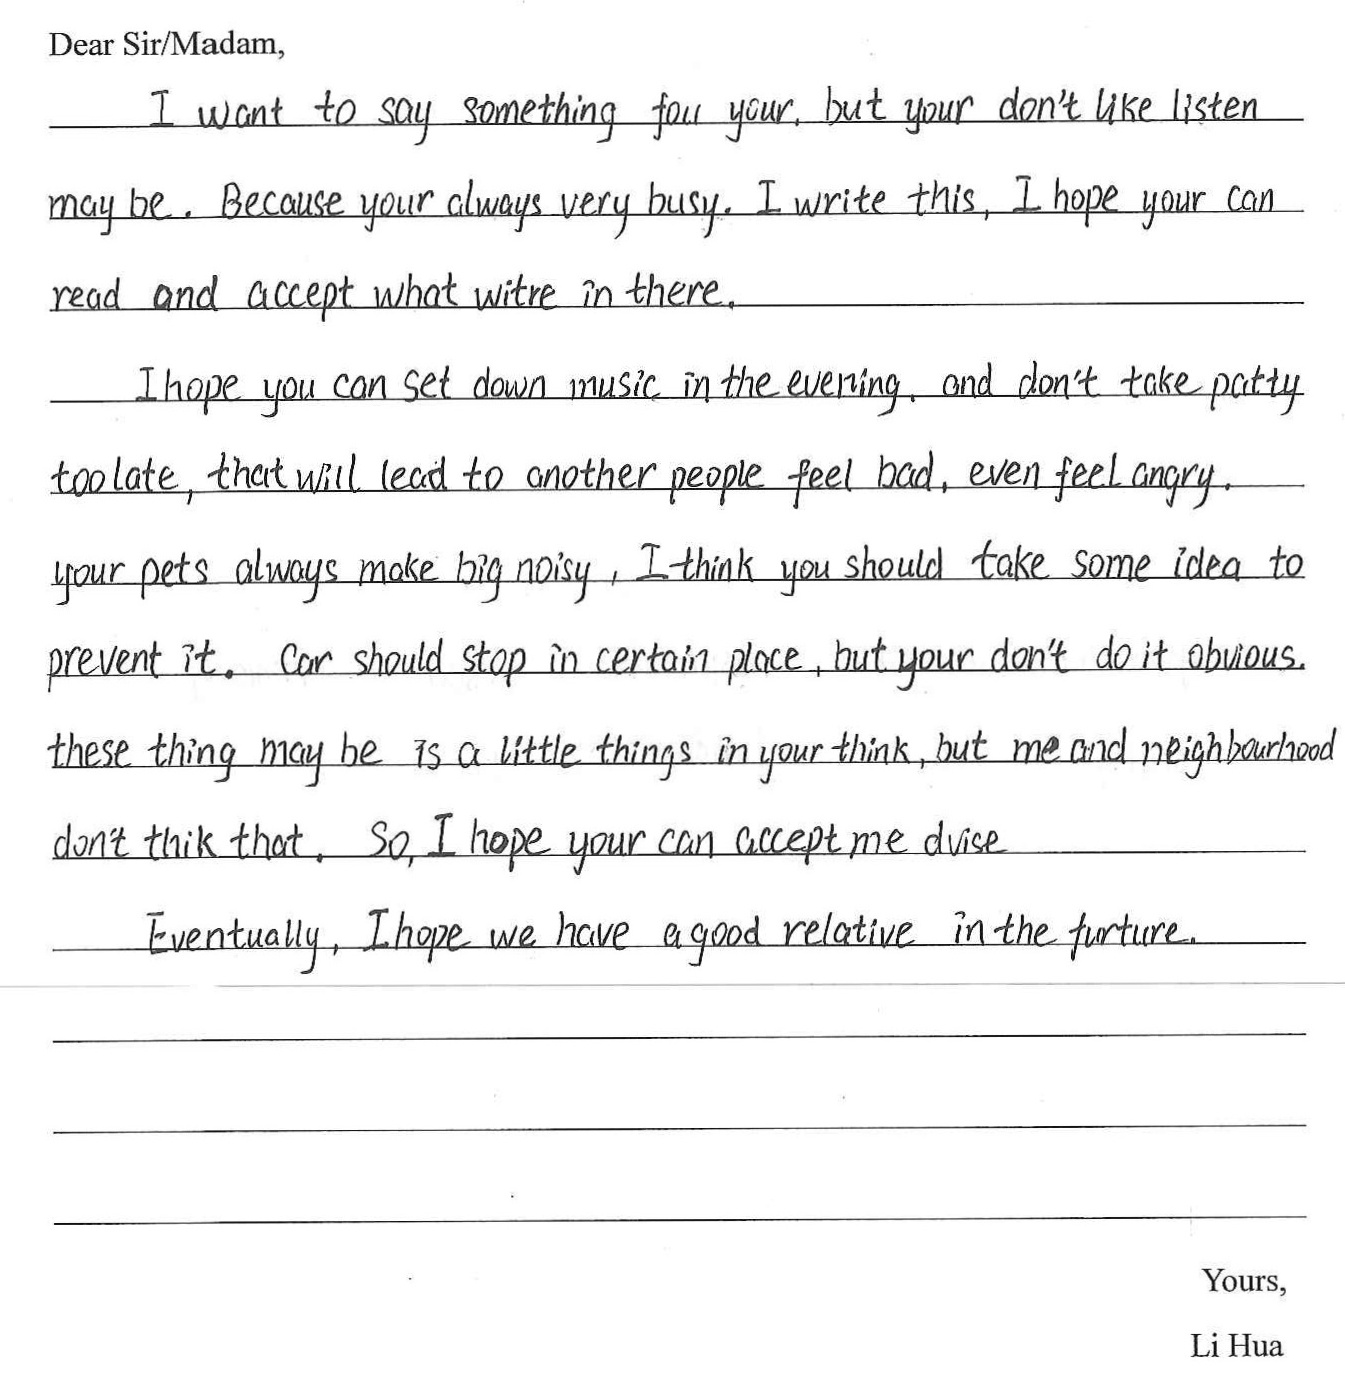 Dear Sir/Madam,
I want to say something fou your, but your don't like listen
may be. Because your always very busy. I write this, I hope your can
read and accept what witre in there.
I hope you can set down music in the evening, and don't take patty
too late, that will lead to another people feel bad, even feel angry.
your pets always make big noisy, I think you should take some idea to
prevent it. Car should stop in certain place, but your don't do it obvious.
these thing may be is a little things in your think, but me and neighbourhood
don't thik that. So, I hope your can accept me dvise
Eventually, I hope we have a good relative in the furture.
Yours,
Li Hua